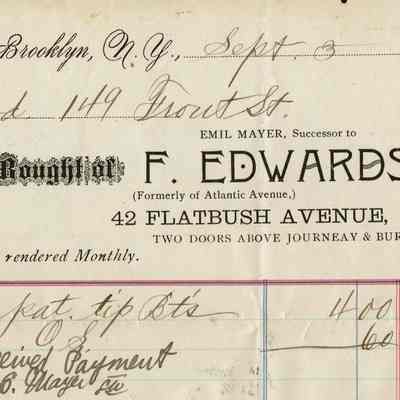 Brooklyn, N.Y., Sept. 3
d. 149 Front St.
EMIL MAYER, Successor to
Bought of F. EDWARDS
(Formerly of Atlantic Avenue,)
42 FLATBUSH AVENUE,
TWO DOORS ABOVE JOURNEAY & BUR
rendered Monthly.
pat. tip Bts 4 00
60
ceived Payment
Mayer